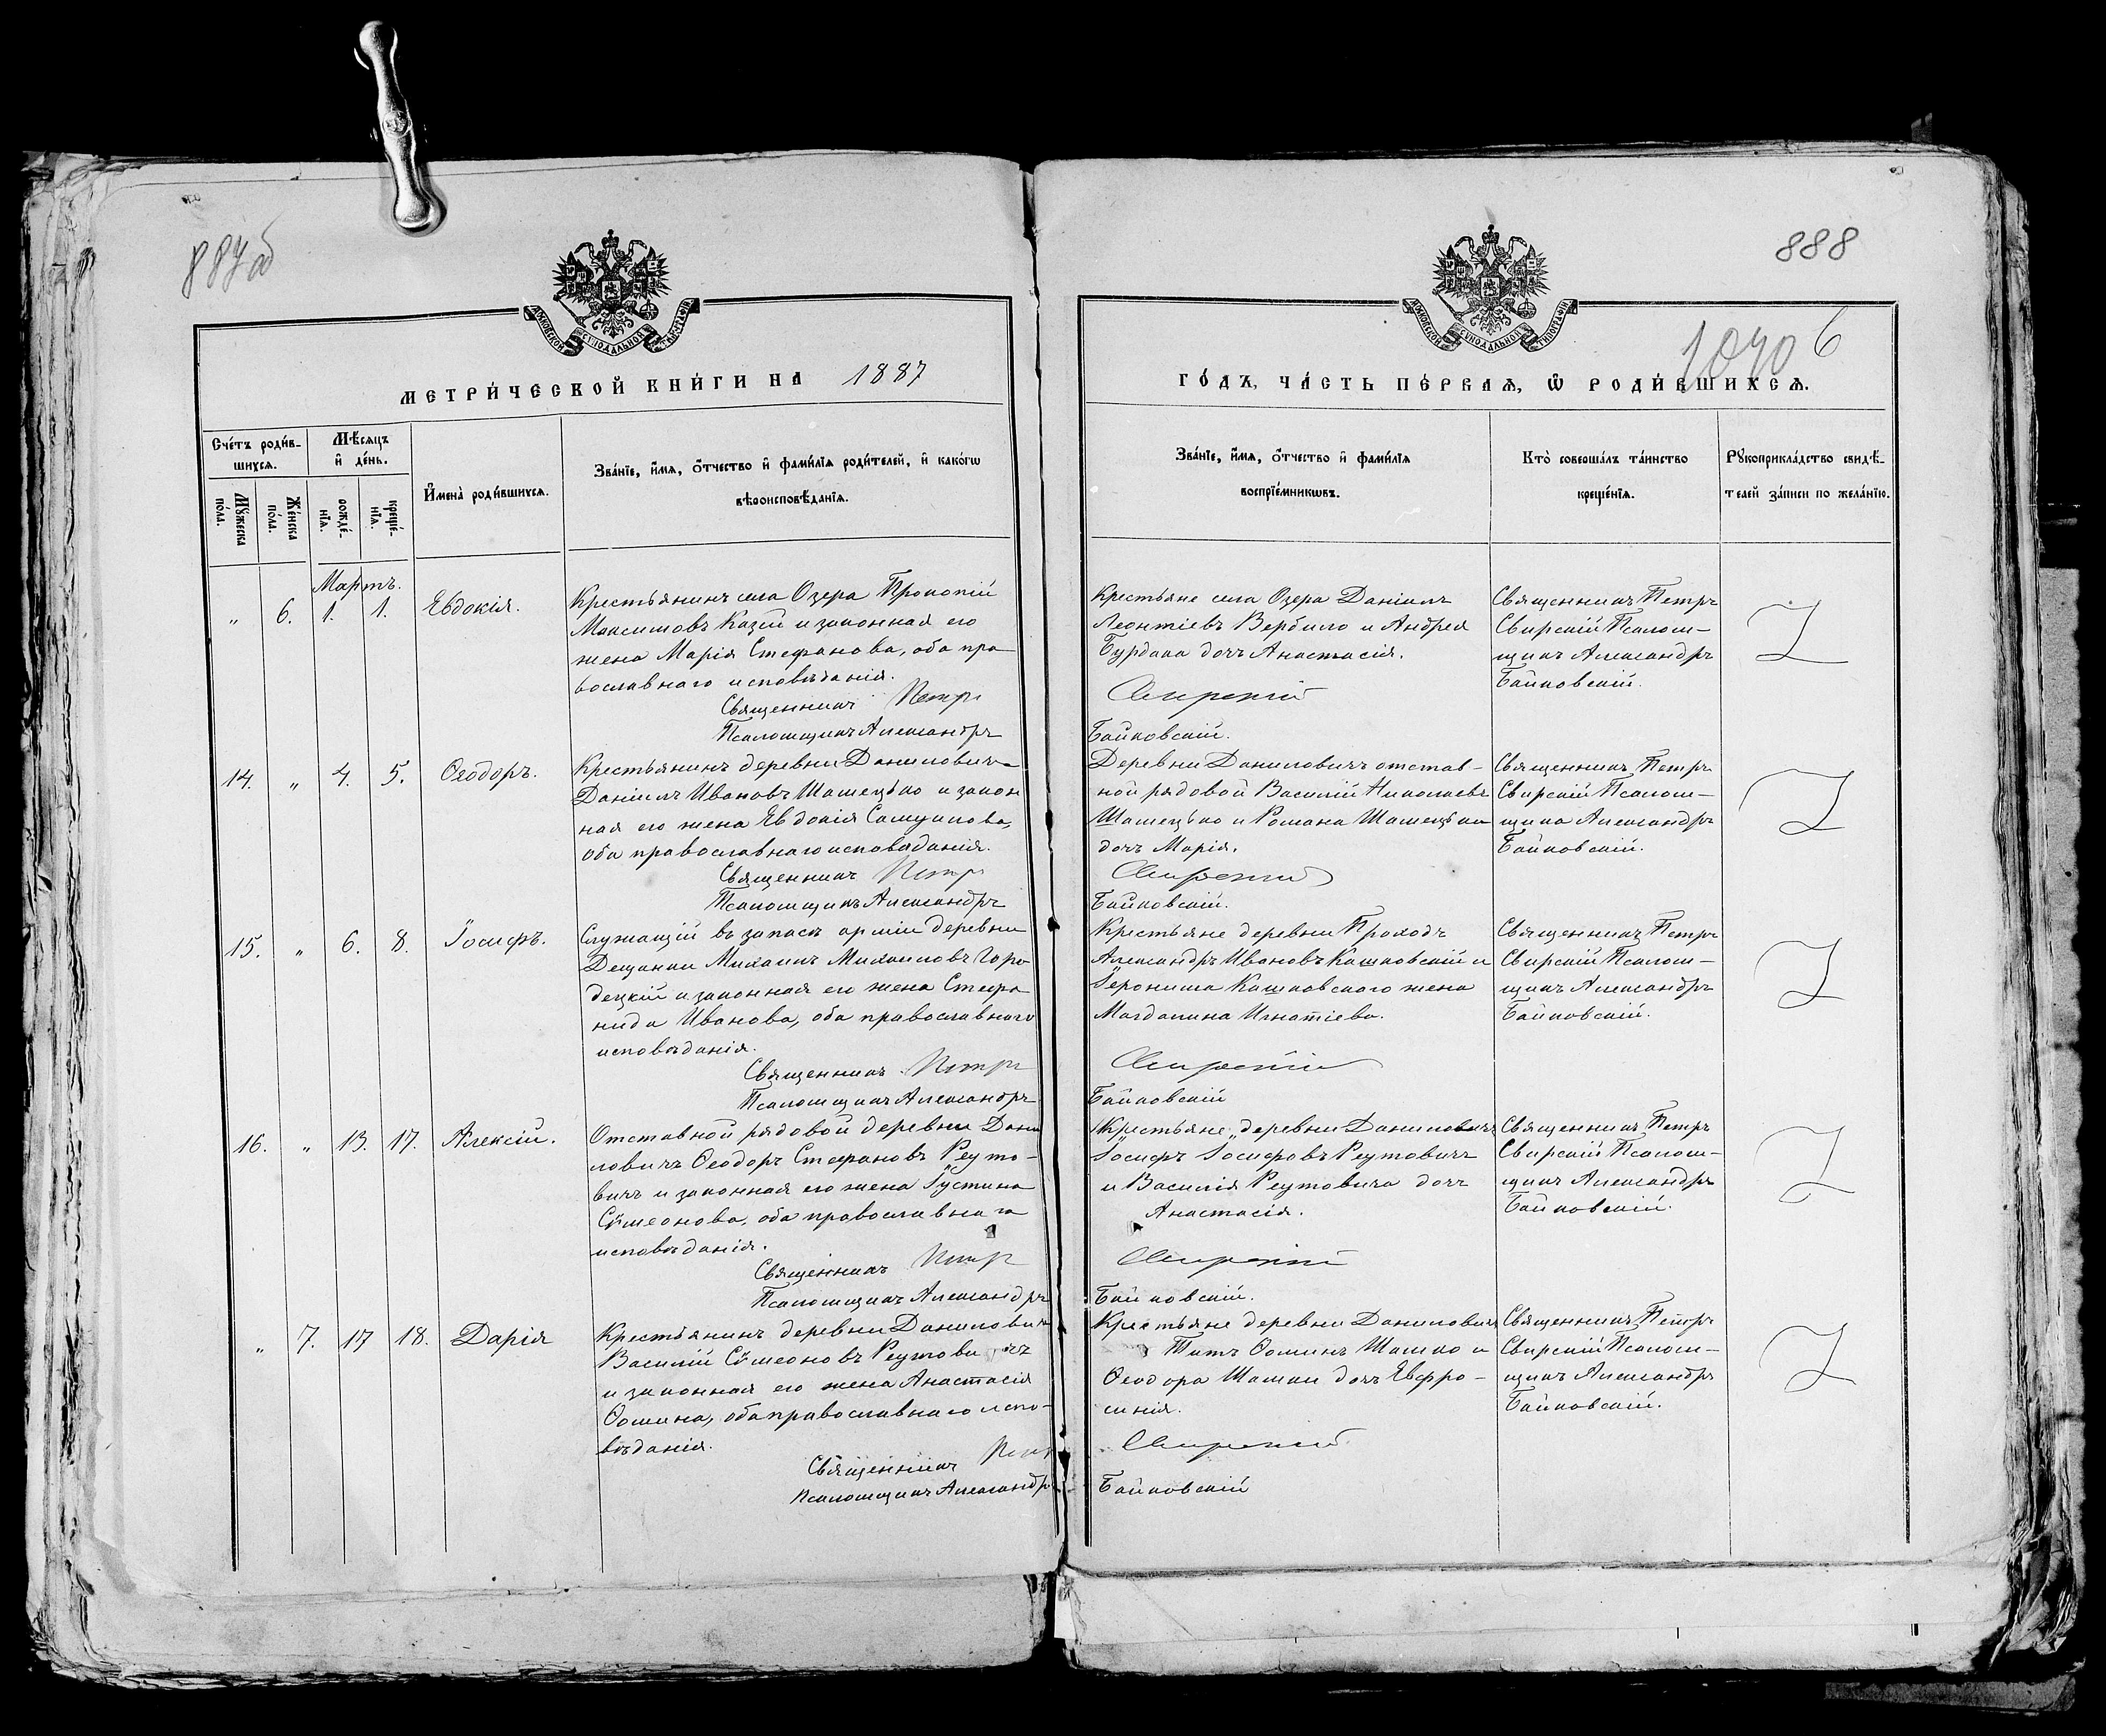 887об
888
1040
6
МОСКОВСКОЙ СѴНОДАЛЬНОЙ ТИПОГРАФІИ
МОСКОВСКОЙ СѴНОДАЛЬНОЙ ТИПОГРАФІИ
МЕТРИ́ЧЕСКОЙ КНИ́ГИ НА 1887
ГО́ДЪ, ЧА́СТЬ ПЕ́РВАѦ, Ѡ РОДИ́ВШИХСѦ.
Сче́тъ роди́в-
шихсѧ.
Мѣ́сѧцъ
и҆ де́нь.
Мꙋ́жеска
по́ла.
Же́нска
по́ла.
рожде́-
нїѧ.
креще́-
нїѧ.
И҆мена̀ роди́вшихсѧ.
Зва́нїе, и҆́мѧ, ѻ҆́тчество и҆ фами́лїѧ роди́телей, и҆ како́гѡ
вѣроисповѣ́данїѧ.
Зва́нїе, и҆́мѧ, ѻ҆́тчество и҆ фами́лїѧ
воспрїе́мникѡвъ.
Кто̀ соверша́лъ та́инство
креще́нїѧ.
Рꙋкоприкла́дство свидѣ́-
телей за́писи по жела́нїю.
Мартъ.
" 6. 1. 1. Евдокія.
Крестьянинъ села Озера Прокопій
Максимовъ Казей и законная его
жена Марія Стефанова, оба пра
вославнаго исповѣданія.
Священникъ Петръ
Псаломщикъ Александръ
Крестьяне села Озера Даніилъ
Леонтіевъ Вербило и Андрея
Бурдака дочь Анастасія.
Свирскій
Байковскій.
Священникъ Петръ
Свирскій Псалом-
щикъ Александръ
Байковскій.
14. " 4. 5. Ѳеодоръ.
Крестьянинъ деревни Даниловичъ
Даніилъ Ивановъ Шашецько и закон
ная его жена Евдокія Самуилова,
оба православнаго исповѣданія.
Священникъ Петръ
Псаломщикъ Александръ
Деревни Даниловичъ отстав-
ной рядовой Василій Николаевъ
Шашецько и Романа Шашецьки
дочь Марія.
Свирскій
Байковскій.
Священникъ Петръ
Свирскій Псалом-
щикъ Александръ
Байковскій.
15. " 6. 8. Іосифъ.
Служащій въ запасѣ арміи деревни
Дещанки Михаилъ Михаиловъ Горо
децкій и законная его жена Стефа
нида Иванова, оба православнаго
исповѣданія.
Священникъ Петръ
Псаломщикъ Александръ
Крестьяне деревни Проходъ
Александръ Ивановъ Кашковскій и
Іеронима Кашковскаго жена
Магдалина Игнатіева.
Свирскій
Байковскій
Священникъ Петръ
Свирскій Псалом-
щикъ Александръ
Байковскій.
16. " 13. 17. Алексій.
Отставной рядовой деревни Дани
ловичъ Ѳеодоръ Стефановъ Реуто-
вичъ и законная его жена Іустина
Сѵмеонова, оба православнаго
исповѣданія.
Священникъ Петръ
Псаломщикъ Александръ
Крестьяне деревни Даниловичъ
Іосифъ Іосифовъ Реутовичъ
и Василія Реутовича дочь
Анастасія.
Свирскій
Байковскій.
Священникъ Петръ
Свирскій Псалом-
щикъ Александръ
Байковскій.
" 7. 17 18. Дарія
Крестьянинъ деревни Даниловичъ
Василій Сѵмеоновъ Реутовичъ
и законная его жена Анастасія
Ѳомина, оба православнаго испо-
вѣданія.
Священникъ Петръ
Псаломщикъ Александръ
Крестьяне деревни Даниловичъ
Титъ Ѳоминъ Шашко и
Ѳеодора Шашки дочь Евфро-
синія.
Свирскій
Байковскій
Священникъ Петръ
Свирскій Псалом-
щикъ Александръ
Байковскій.